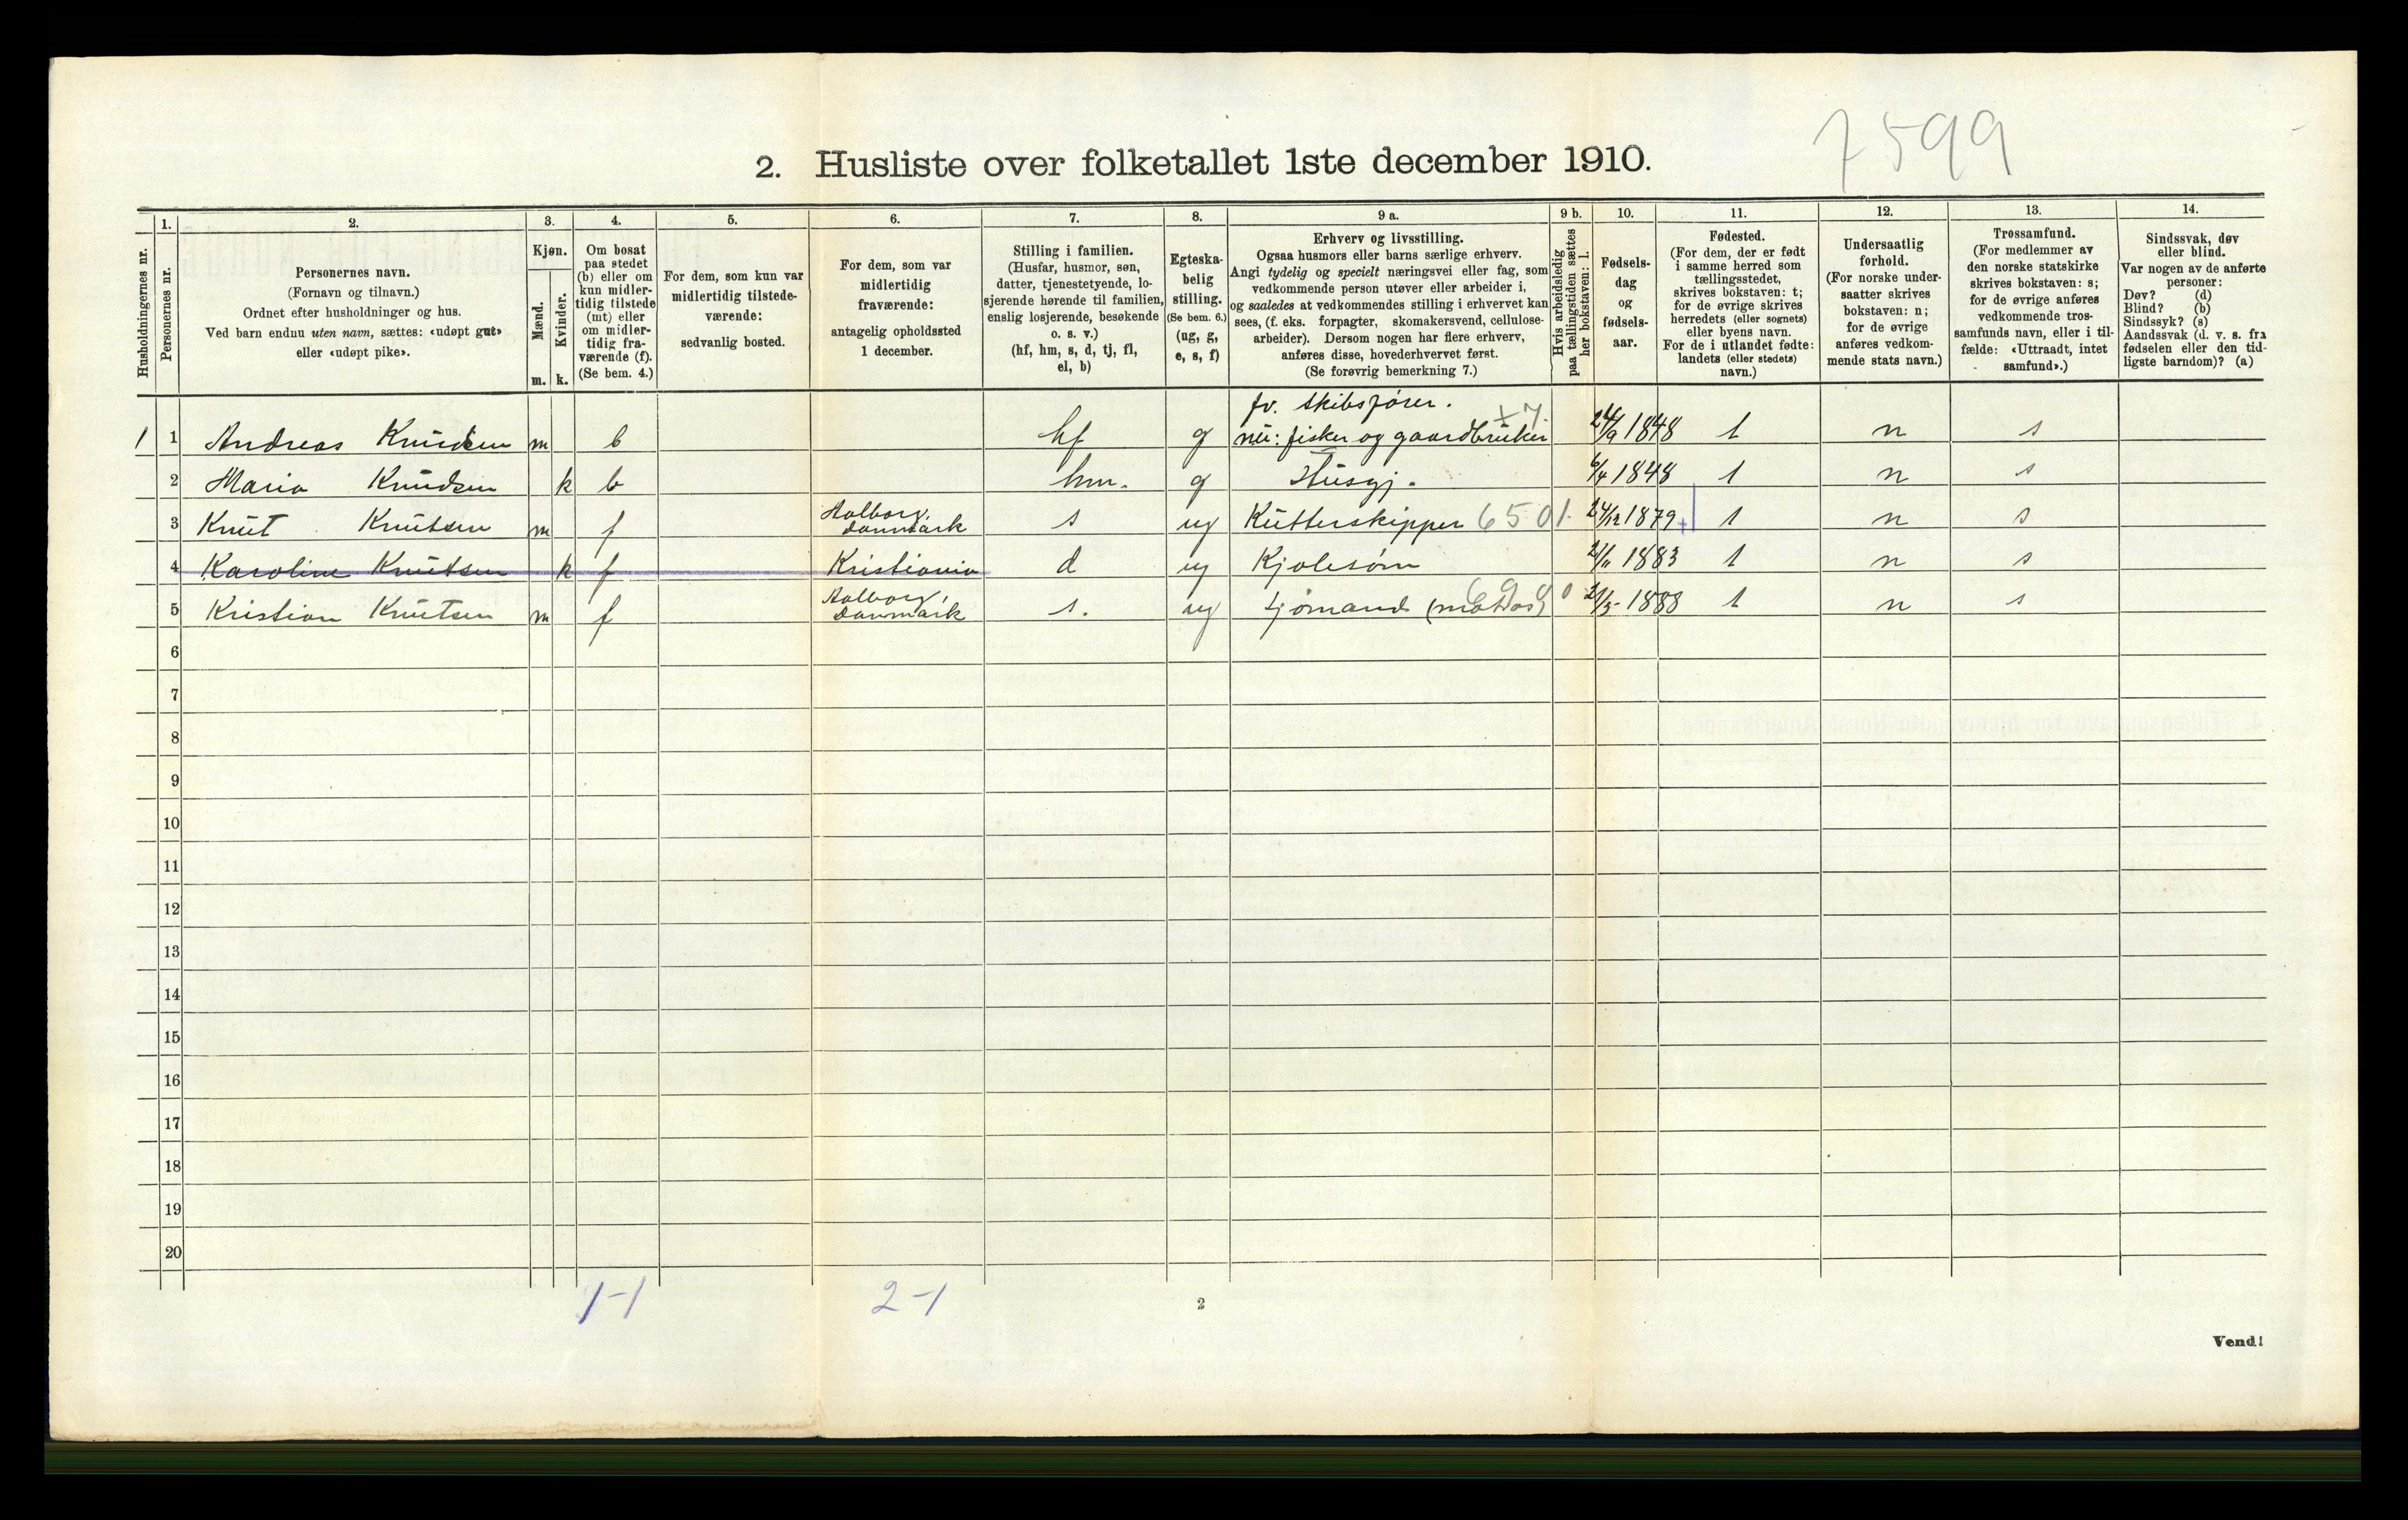 7599
2. Husliste over folketallet 1ste december 1910.
Husholdningernes nr.
1.
Personernes nr.
2.
Personernes navn.
(Fornavn og tilnavn.)
Ordnet efter husholdninger og hus.
Ved barn endnu uten navn, sættes: «udøpt gut»
eller «udøpt pike».
3.
Kjøn.
Mænd.
Kvinder.
m. k.
4.
Om bosat
paa stedet
(b) eller om
kun midler-
tidig tilstede
(mt) eller
om midler-
tidig fra-
værende (f).
(Se bem. 4.)
5.
For dem, som kun var
midlertidig tilstede-
værende:
sedvanlig bosted.
6.
For dem, som var
midlertidig
fraværende:
antagelig opholdssted
1 december.
7.
Stilling i familien.
(Husfar, husmor, søn,
datter, tjenestetyende, lo-
sjerende hørende til familien,
enslig losjerende, besøkende
o. s. v.)
(hf, hm, s, d, tj, fl,
el, b)
8.
Egteska-
belig
stilling.
(Se bem. 6.)
(ug, g,
e, s, f)
9 a.
Erhverv og livsstilling.
Ogsaa husmors eller barns særlige erhverv.
Angi tydelig og specielt næringsvei eller fag, som
vedkommende person utøver eller arbeider i,
og saaledes at vedkommendes stilling i erhvervet kan
sees, (f. eks. forpagter, skomakersvend, cellulose-
arbeider). Dersom nogen har flere erhverv,
anføres disse, hovederhvervet først.
(Se forøvrig bemerkning 7.)
9 b.
Hvis arbeidsledig
paa tællingstiden sættes
her bokstaven: l.
10.
Fødsels-
dag
og
fødsels-
aar.
11.
Fødested.
(For dem, der er født
i samme herred som
tællingsstedet,
skrives bokstaven: t;
for de øvrige skrives
herredets (eller sognets)
eller byens navn.
For de i utlandet fødte:
landets (eller stedets)
navn.)
12.
Undersaatlig
forhold.
(For norske under-
saatter skrives
bokstaven: n;
for de øvrige
anføres vedkom-
mende stats navn.)
13.
Trossamfund.
(For medlemmer av
den norske statskirke
skrives bokstaven: s;
for de øvrige anføres
vedkommende tros-
samfunds navn, eller i til-
fælde: «Uttraadt, intet
samfund».)
14.
Sindssvak, døv
eller blind.
Var nogen av de anførte
personer:
Døv? (d)
Blind? (b)
Sindssyk? (s)
Aandssvak (d. v. s. fra
fødselen eller den tid-
ligste barndom)? (a)
fv. skibsfører.
1 1 Andreas Knudsen m b hf g nu: fisker og gaardbruker 24/9 1848 t n s
2 Maria Knudsen k b hm. g Husgj. 6/4 1848 t n s
3 Knut Knutsen m f Aalborg, Danmark s ug Kutterskipper 6501. 24/12 1879 t n s
4 Karoline Knutsen k f Kristiania d ug Kjolesøm 1883 t n s
5 Kristian Knutsen m f Aalborg, Danmark s. ug sjømand (matros) 21/5 1888 t n s
6
7
8
9
10
11
12
13
14
15
16
17
18
19
20
1-1
2-1
2
Vend!